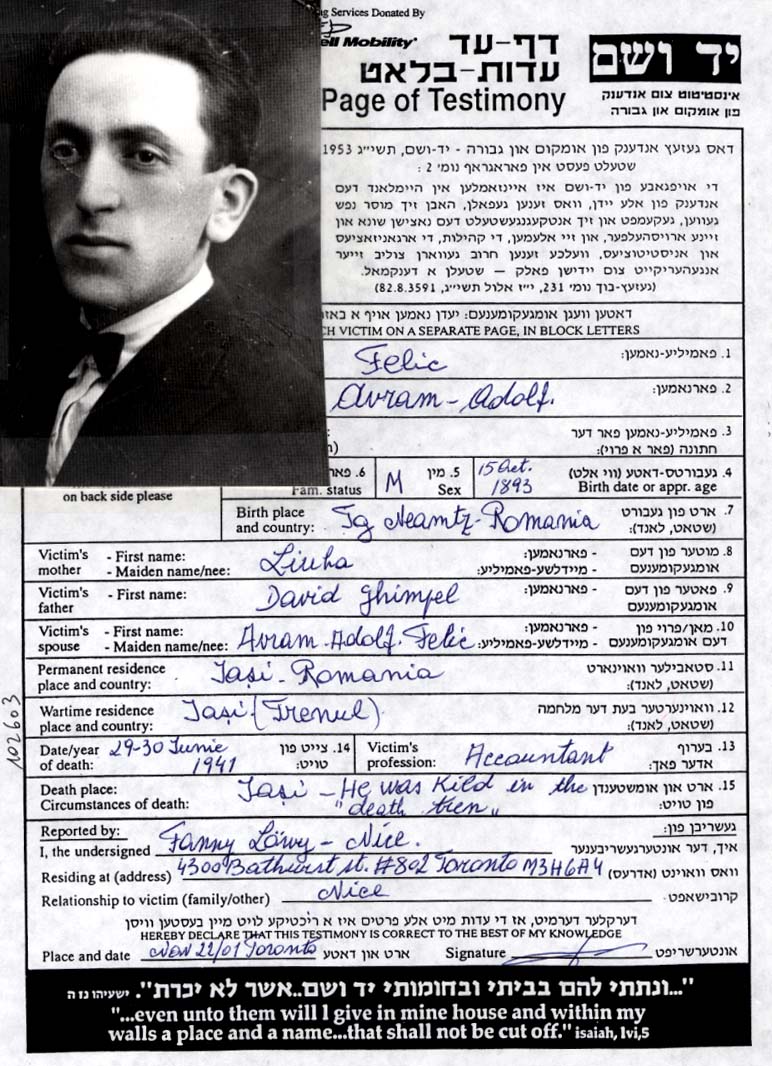 ng Services Donated By
ell Mobility
דף-עד
עדות-בלאט
Page of Testimony
יד ושם
אינסטיטוט צום אנדענק
פון אומקום און גבורה
דאס געזעץ אנדענק פון אומקום און גבורה - יד-ושם, תשי״ג 1953
שטעלט פעסט אין פאראגראף נומ׳ 2 :
די אויפגאבע פון יד-ושם איז איינזאמלען אין היימלאנד דעם
אנדענק פון אלע יידן, וואס זענען געפאלן, האבן זיך מוסר נפש
געווען, געקעמפט און זיך אנטקעגנגעשטעלט דעם נאצישן שונא און
זיינע ארויסהעלפער, און זיי אלעמען, די קהילות, די ארגאניזאציעס
און אניסטיטוציעס, וועלכע זענען חרוב געווארן צוליב זייער
אנגעהעריקייט צום יידישן פאלק – שטעלן א דענקמאל.
(געזעץ-בוך נומ׳ 231, י״ז אלול תשי״ג, 82.8.3591)
דאטען וועגן אומגעקומענעם: יעדן נאמען אויף א באזו
CH VICTIM ON A SEPARATE PAGE, IN BLOCK LETTERS
Felic
1. פאמיליע-נאמען:
Avram-Adolf.
2. פארנאמען:
3. פאמיליע-נאמען פאר דער
חתונה (פאר א פרוי):
on back side please
6. פאר
Fam. status
M
5. מין
Sex
15 Oct.
1893
4. געבורטס-דאטע (ווי אלט)
Birth date or appr. age
Birth place
and country:
Tg Neamtz-Romania
7. ארט פון געבורט
(שטאט, לאנד):
Victim's
mother
- First name:
- Maiden name/nee:
Liuha
- פארנאמען:
- מיידלשע-פאמיליע:
8. מוטער פון דעם
אומגעקומענעם
Victim's
father
- First name:
David Ghimpel
- פארנאמען:
9. פאטער פון דעם
אומגעקומענעם
Victim's
spouse
- First name:
- Maiden name/nee:
Avram-Adolf. Felic
- פארנאמען:
- מיידלשע-פאמיליע:
10. מאן/פרוי פון
דעם אומגעקומענעם
Permanent residence
place and country:
Iași-Romania
11. סטאבילער וואוינארט
(שטאט, לאנד):
Wartime residence
place and country:
Iași (Trenul)
12. וואוינערטער בעת דער מלחמה
(שטאט, לאנד):
Date/year
of death:
29-30 Iunie
1941
14. צייט פון
טויט:
Victim's
profession:
Accountant
13. בערוף
אדער פאך:
Death place:
Circumstances of death:
Iași - He was Kild in the
"death tren"
15. ארט און אומשטענדן
פון טויט:
Reported by:
געשריבן פון:
I, the undersigned
Fanny Löwy - Nice.
איך, דער אונטערגעשריבענער
Residing at (address)
4300 Bathurst st. #802 Toronto M3H6A4
וואס וואוינט (אדרעס)
Relationship to victim (family/other)
Nice
קרובישאפט
דערקלער דערמיט, אז די עדות מיט אלע פרטים איז א ריכטיקע לויט מיין בעסטען וויסן
HEREBY DECLARE THAT THIS TESTIMONY IS CORRECT TO THE BEST OF MY KNOWLEDGE
Place and date
Nov 22/01 Toronto
ארט און דאטע
Signature
אונטערשריפט
"...ונתתי להם בביתי ובחומותי יד ושם..אשר לא יכרת". ישעיהו נז ה
"...even unto them will I give in mine house and within my
walls a place and a name...that shall not be cut off." isaiah, lvi,5
102603